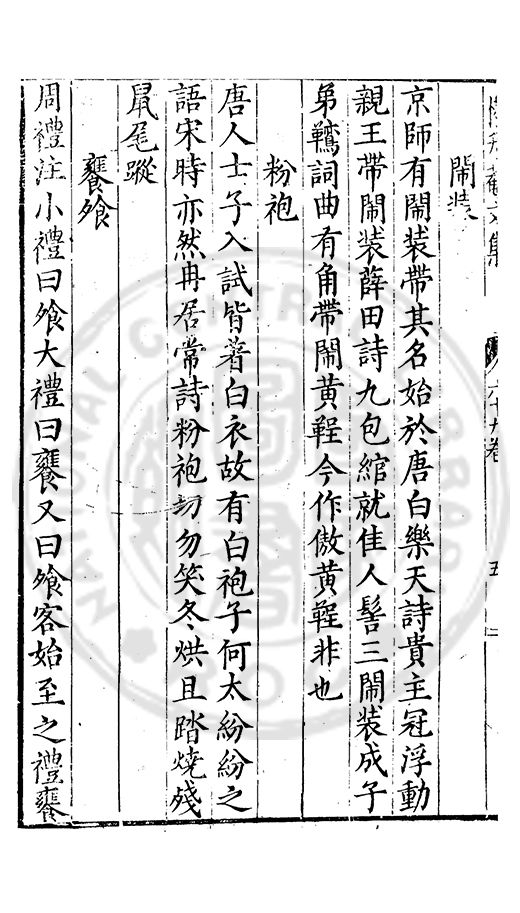 升菴文集
六十九卷
五
鬧装
京師有鬧装帶其名始於唐白樂天詩貴主冠浮動
親王帶鬧装薛田詩九包綰就佳人髻三鬧装成子
弟韉詞曲有角帶鬧黄鞓今作傲黄鞓非也
粉袍
唐人士子入試皆著白衣故有白袍子何太紛紛之
語宋時亦然冉居常詩粉袍勿笑冬烘且踏燒殘
鼠尾蹤
饔飧
周禮注小禮曰飧大禮曰饔又曰飧客始至之禮饔